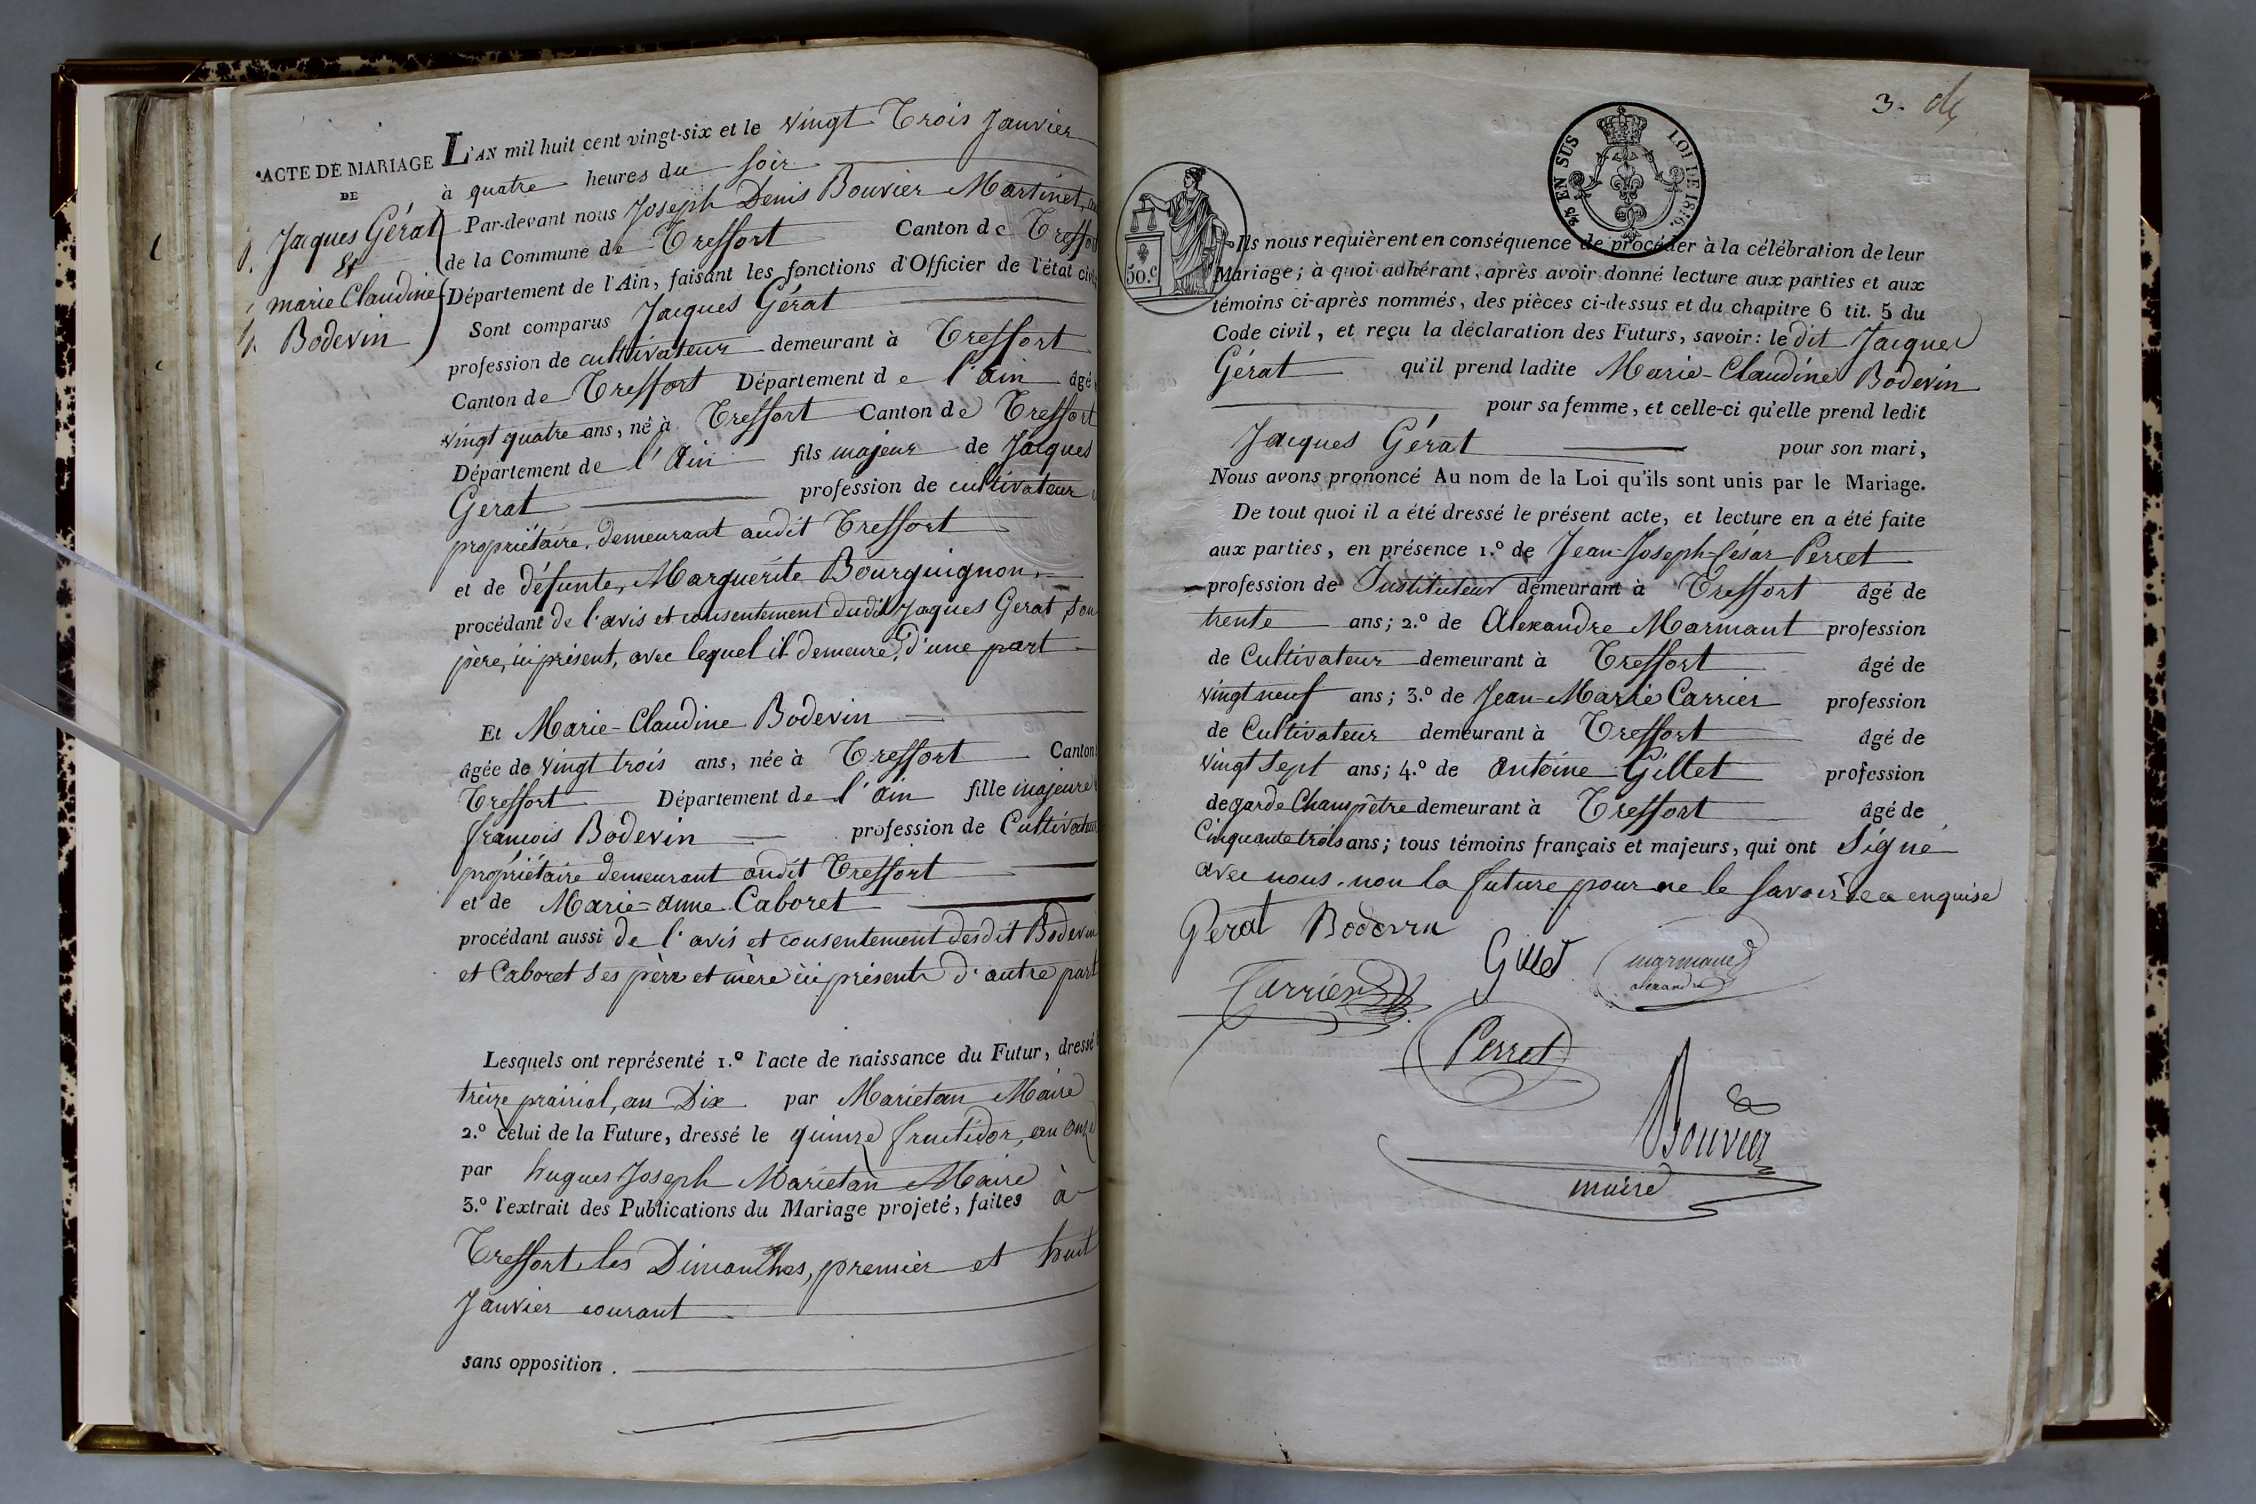 ACTE DE MARIAGE
DE
Jacques Gérat
et
marie Claudine
Bodevin
L'AN mil huit cent vingt-six et le vingt Trois Janvier
à quatre heures du soir
Par-devant nous Joseph Denis Bouvier Martinet,
de la Commune de Treffort Canton de Treffort
Département de l'Ain, faisant les fonctions d'Officier de l'état civil
Sont comparus Jacques Gérat
profession de cultivateur demeurant à Treffort
Canton de Treffort Département de l'ain âgé
vingt quatre ans, né à Treffort Canton de Treffort
Département de l'Ain fils majeur de Jacques
Gerat profession de cultivateur
propriétaire, demeurant audit Treffort
et de défunte, Marguerite Bourguignon,
procédant de l'avis et consentement dudit Jaques Gerat son
père, ici présent, avec lequel il demeure, d'une part
Et Marie-Claudine Bodevin
âgée de vingt trois ans, née à Treffort Canton
Treffort Département de l'ain fille majeure
françois Bodevin profession de Cultivateur
propriétaire demeurant audit Treffort
et de Marie-anne Caboret
procédant aussi de l'avis et consentement desdit Bodevin
et Caboret ses père et mère ici présents d'autre part
Lesquels ont représenté 1.º l'acte de naissance du Futur, dressé
treize prairial, an Dix par Marietan Maire
2.º celui de la Future, dressé le quinze fructidor, an onze
par hugues Joseph Marietan Maire
3.º l'extrait des Publications du Mariage projeté, faites à
Treffort les Dimanches, premier et huit
Janvier courant
sans opposition.
3.
2/5 EN SUS LOI DE 1816.
50.c
Ils nous requièrent en conséquence de procéder à la célébration de leur
Mariage; à quoi adhérant, après avoir donné lecture aux parties et aux
témoins ci-après nommés, des pièces ci-dessus et du chapitre 6 tit. 5 du
Code civil, et reçu la déclaration des Futurs, savoir: le dit Jacques
Gérat qu'il prend ladite Marie-Claudine Bodevin
pour sa femme, et celle-ci qu'elle prend ledit
Jacques Gérat pour son mari,
Nous avons prononcé Au nom de la Loi qu'ils sont unis par le Mariage.
De tout quoi il a été dressé le présent acte, et lecture en a été faite
aux parties, en présence 1.º de Jean-Joseph-César Perret
profession de Instituteur demeurant à Treffort âgé de
trente ans; 2.º de Alexandre Marmant profession
de Cultivateur demeurant à Treffort âgé de
vingt neuf ans; 3.º de Jean-Marie Carrier profession
de Cultivateur demeurant à Treffort âgé de
vingt sept ans; 4.º de Antoine Gillet profession
de garde Champêtre demeurant à Treffort âgé de
Cinquante trois ans; tous témoins français et majeurs, qui ont signé
avec nous. non la future pour ne le savoir de ce enquise
Gerat Bodevin
Gillet
marmand
alexandre
Carrier
Perret
Bouvier
maire